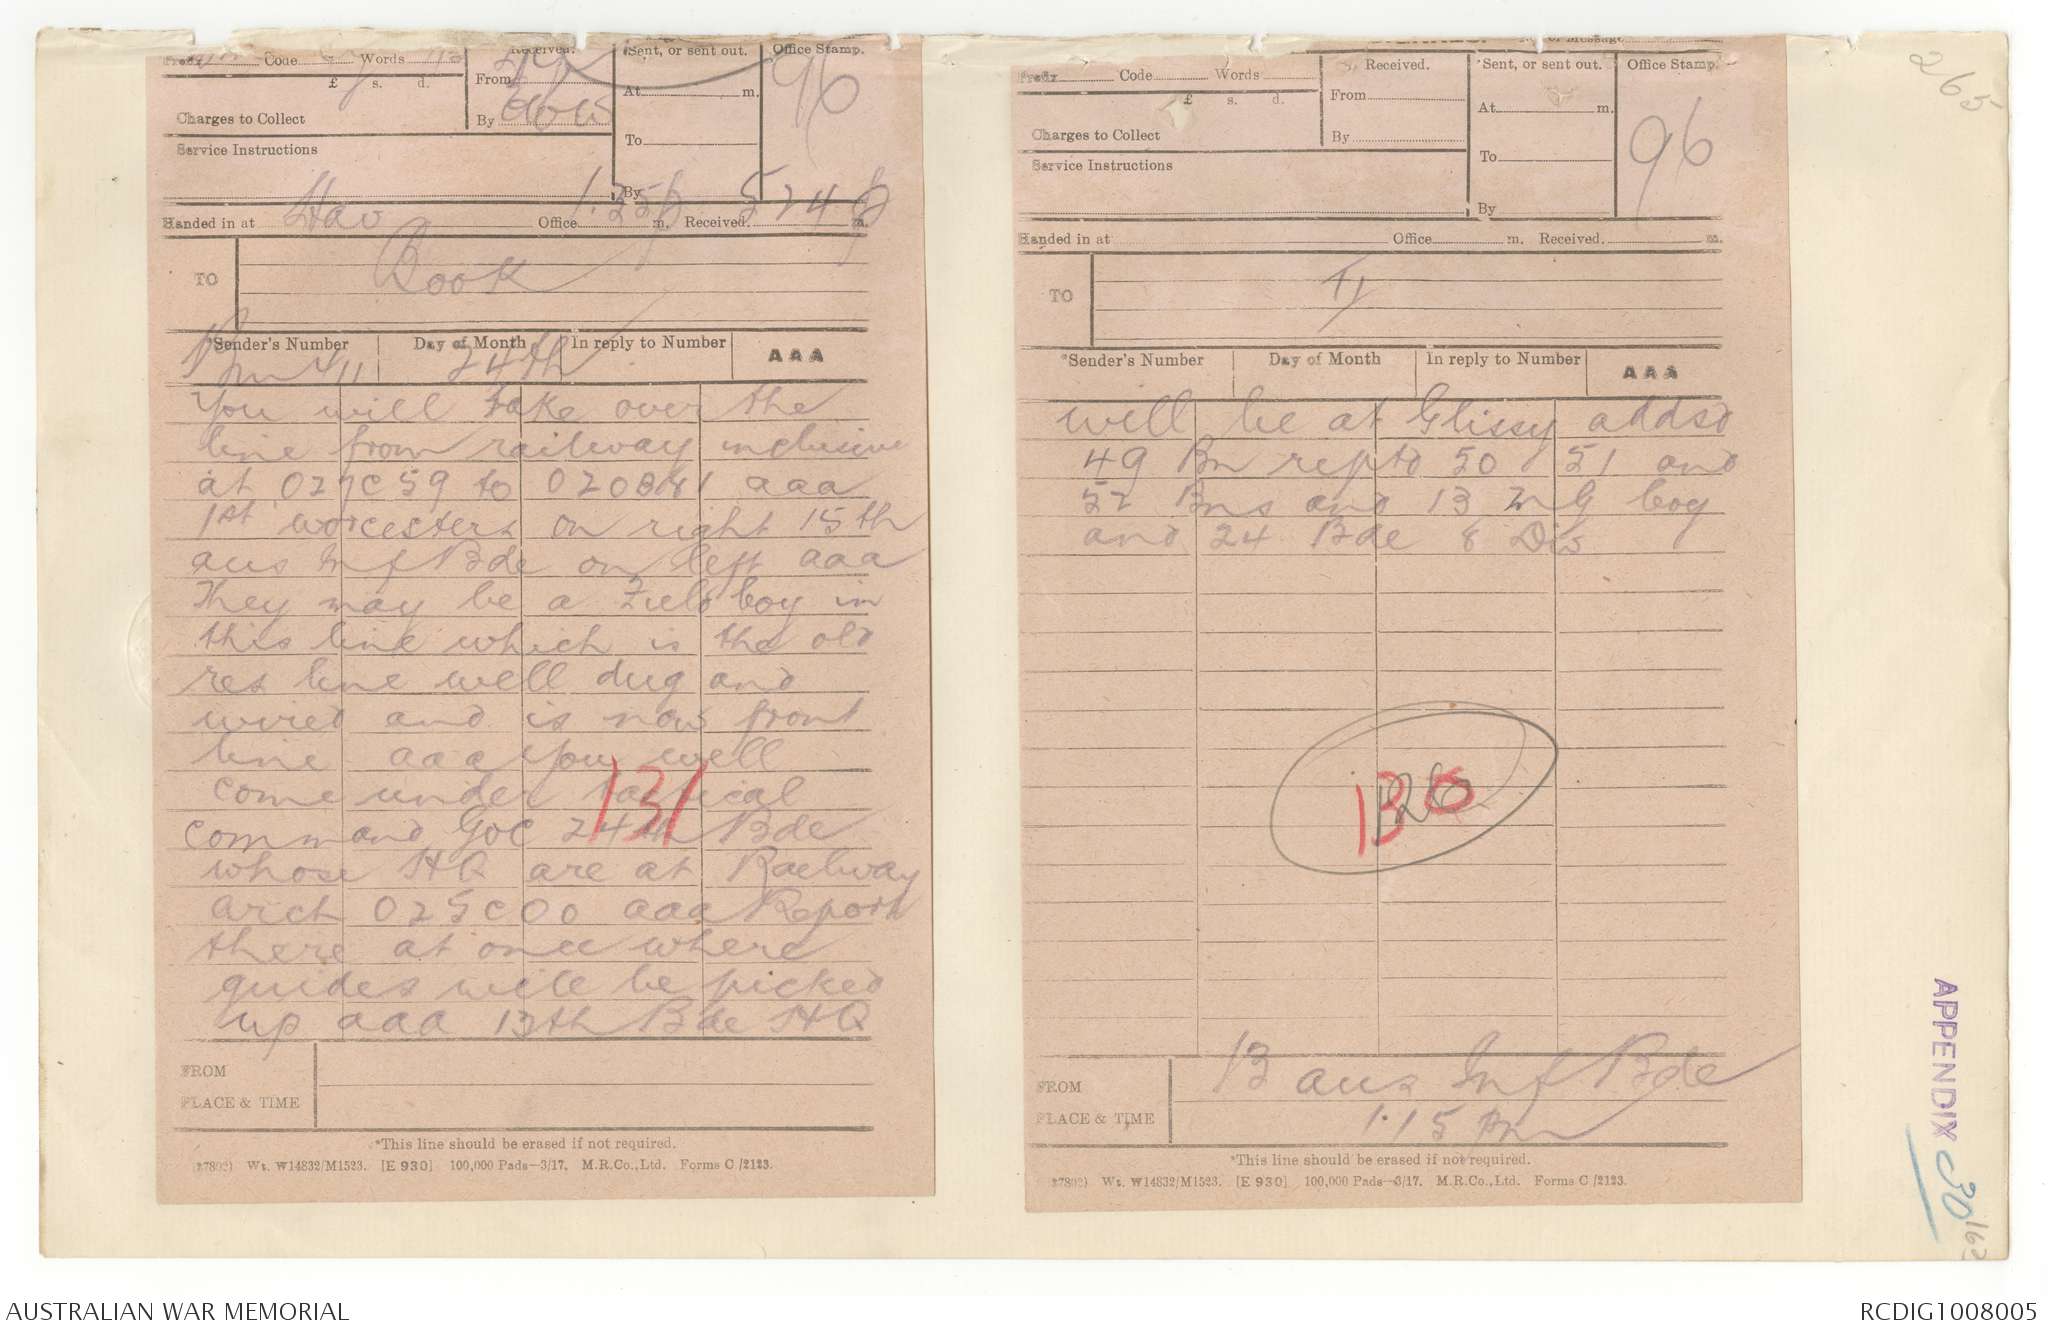 Prefix Code Words 113
£ s. d.
Charges to Collect
Service Instructions
Received.
From
By
Sent, or sent out.
At m.
To
By
Office Stamp.
96
Handed in at Hav Office 1.25p m. Received. 5 24 p m.
TO Book
*Sender's Number Day of Month In reply to Number AAA
Bm 411 24th
You will take over the
line from railway inclusive
at 027C59 to 020B81 aaa
1st Worcesters on right 15th
aus Inf Bde on left aaa
They may be a Field Coy in
this line which is the old
res line well dug and
wired and is now front
line aaa You will
come under tactical
command GOC 24th Bde
131
whose HQ are at Railway
arch 025C00 aaa Report
there at once where
guides will be picked
up aaa 13th Bde HQ
FROM
PLACE & TIME
*This line should be erased if not required.
(27802) Wt. W14832/M1523. [E 930] 100,000 Pads—3/17. M.R.Co.,Ltd. Forms C/2123.
No. of Message
Prefix Code Words
£ s. d.
Charges to Collect
Service Instructions
Received.
From
By
Sent, or sent out.
At m.
To
By
Office Stamp.
96
Handed in at Office m. Received. m.
TO
*Sender's Number Day of Month In reply to Number AAA
will be at Glissy addsd
49 Bn reptd 50 51 and
52 Bns and 13 MG Coy
and 24 Bde 8 Div
130
FROM 13 aus Inf Bde
PLACE & TIME 1.15 pm
*This line should be erased if not required.
27802) Wt. W14832/M1523. [E 930] 100,000 Pads—3/17. M.R.Co.,Ltd. Forms C/2123.
265
APPENDIX 30
162
AUSTRALIAN WAR MEMORIAL
RCDIG1008005